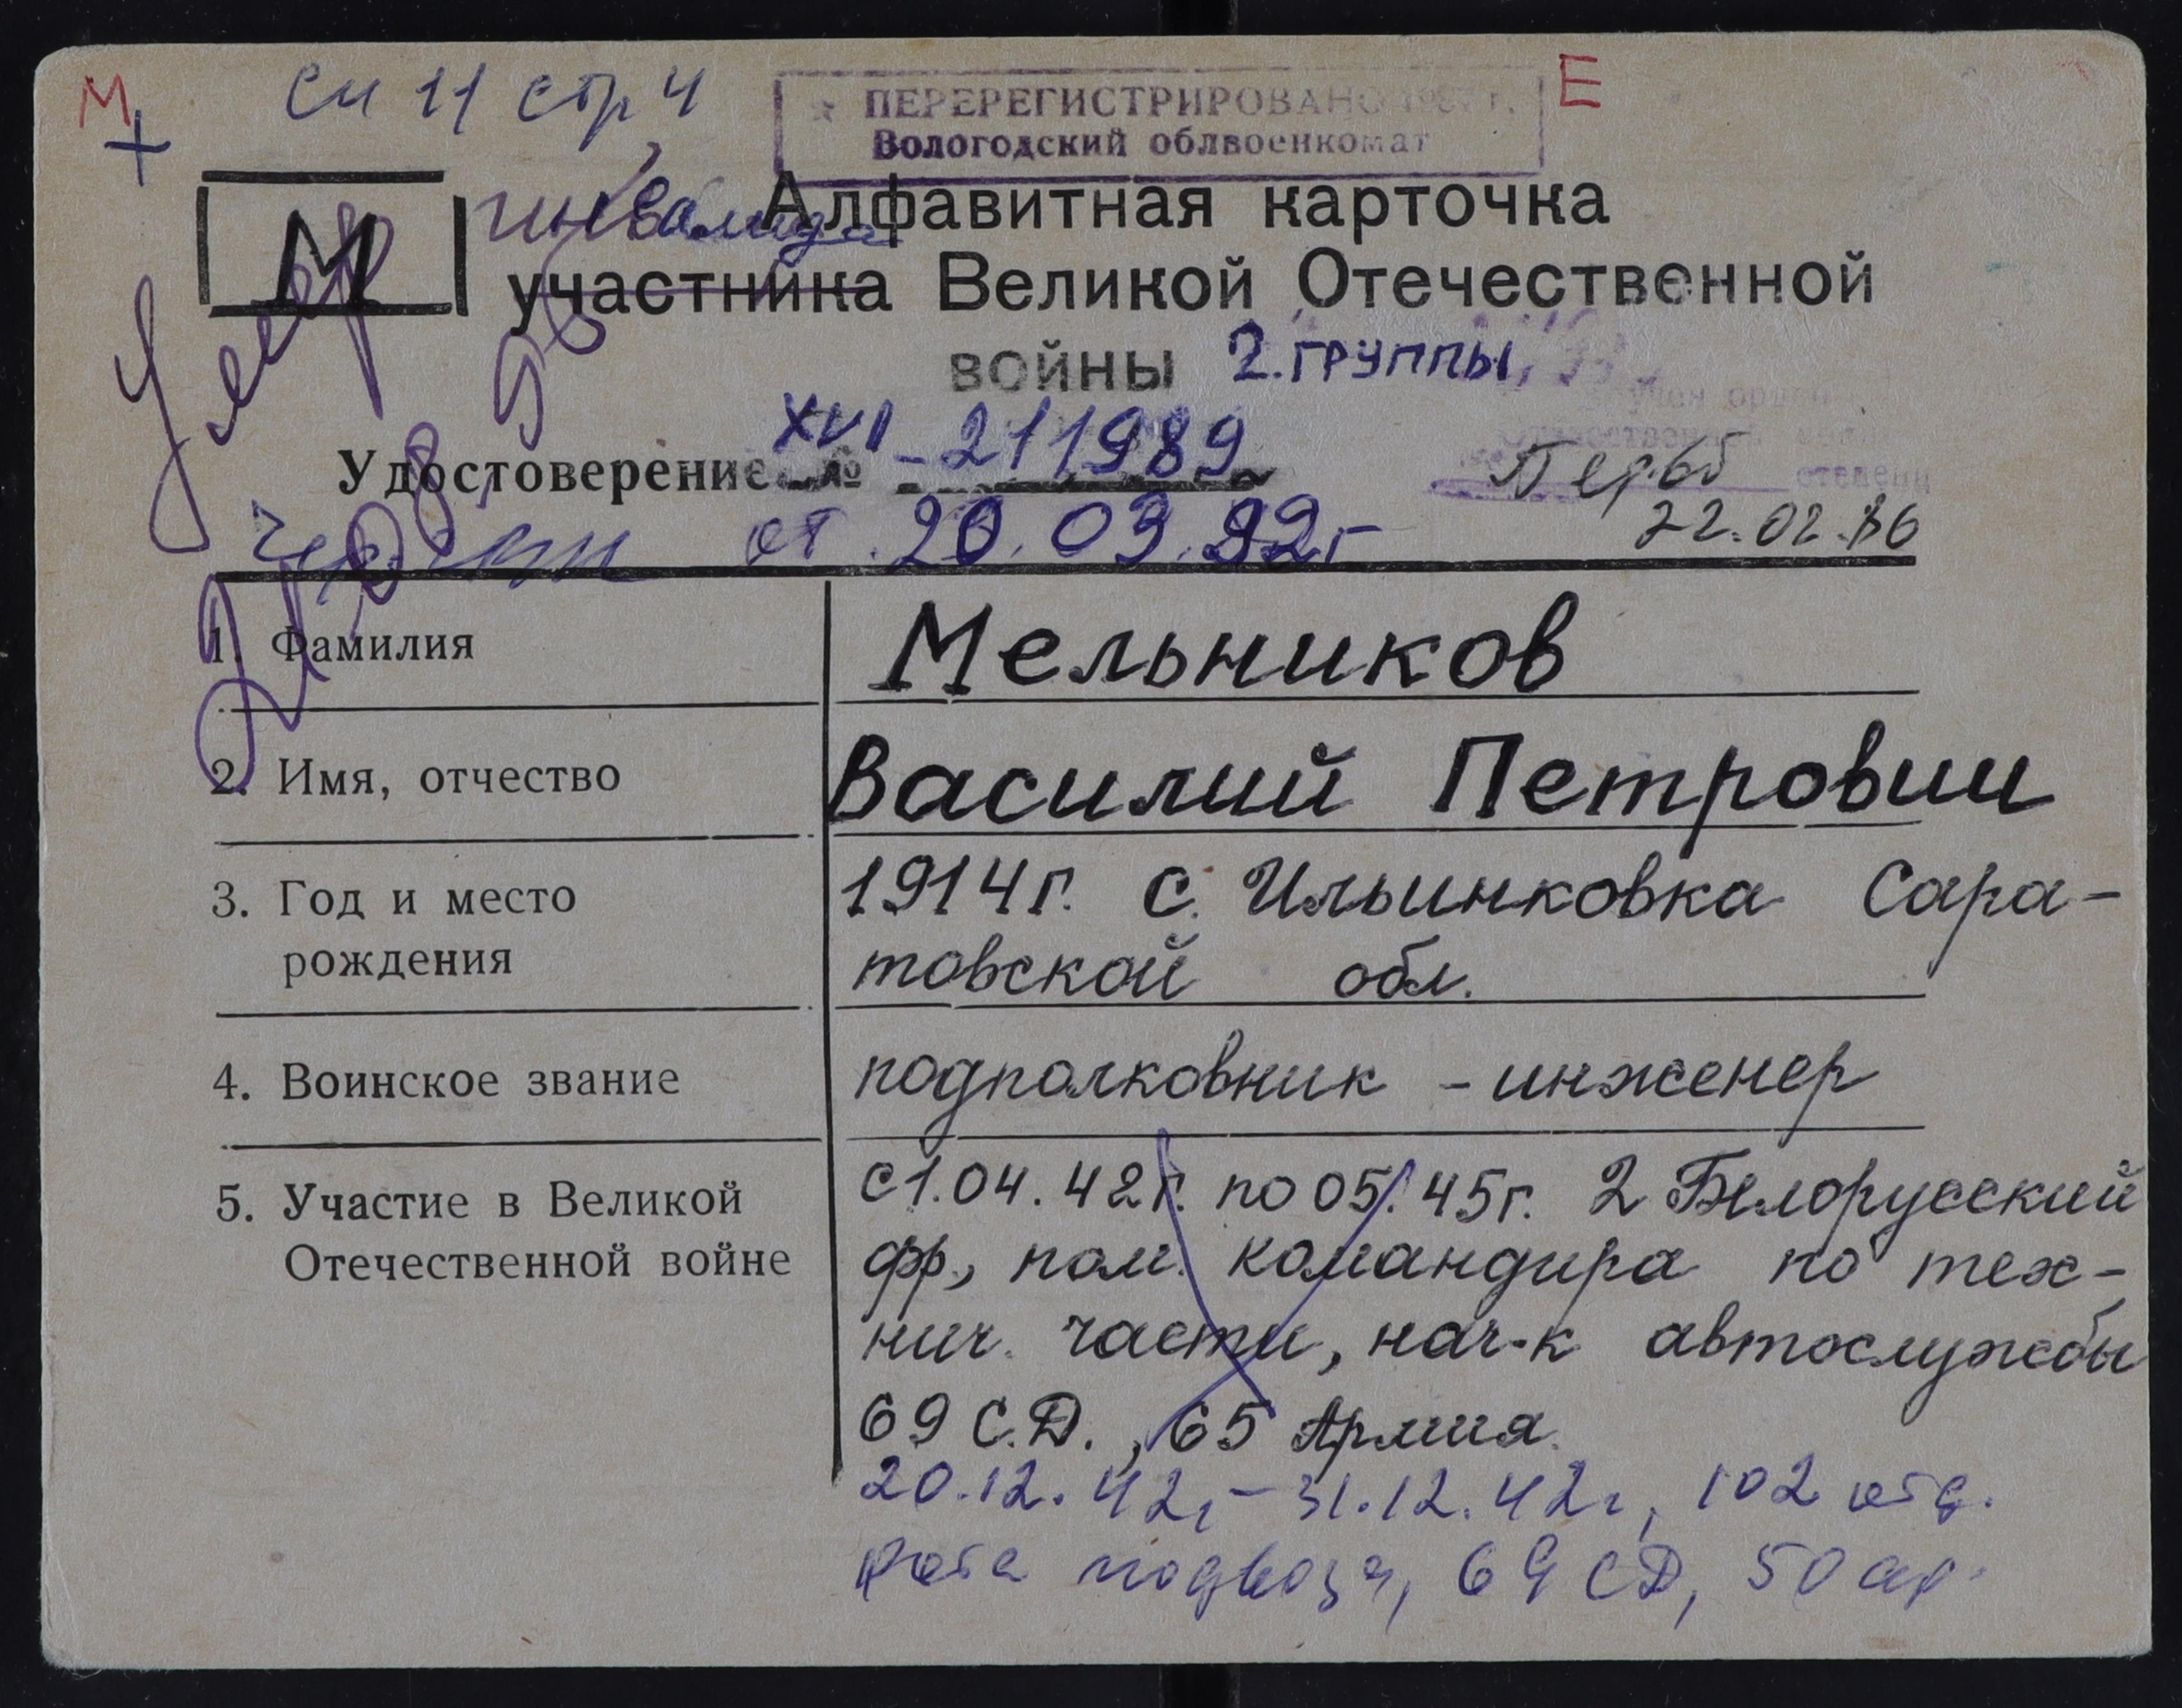 М
см 11 стр 4
Е
ПЕРЕРЕГИСТРИРОВАНО 1987 г.
Вологодский облвоенкомат
М
инвалида
Алфавитная карточка
участника Великой Отечественной
войны 2. группы
Умер
Удостоверение № XVI - 211989
от 20.03.92г
22.02.86
степени
1. Фамилия
Мельников
2. Имя, отчество
Василий Петрович
3. Год и место
рождения
1914г. с. Ильинковка Сара-
товской обл.
4. Воинское звание
подполковник - инженер
5. Участие в Великой
Отечественной войне
С 1.04.42г. по 05.45г. 2 Белорусский
фр, пом. командира по тех-
нич. части, нач-к автослужбы
69 С.Д., 65 Армия.
20.12.42г - 31.12.42г, 102 отд.
рота подвоза, 69 СД, 50 ар.